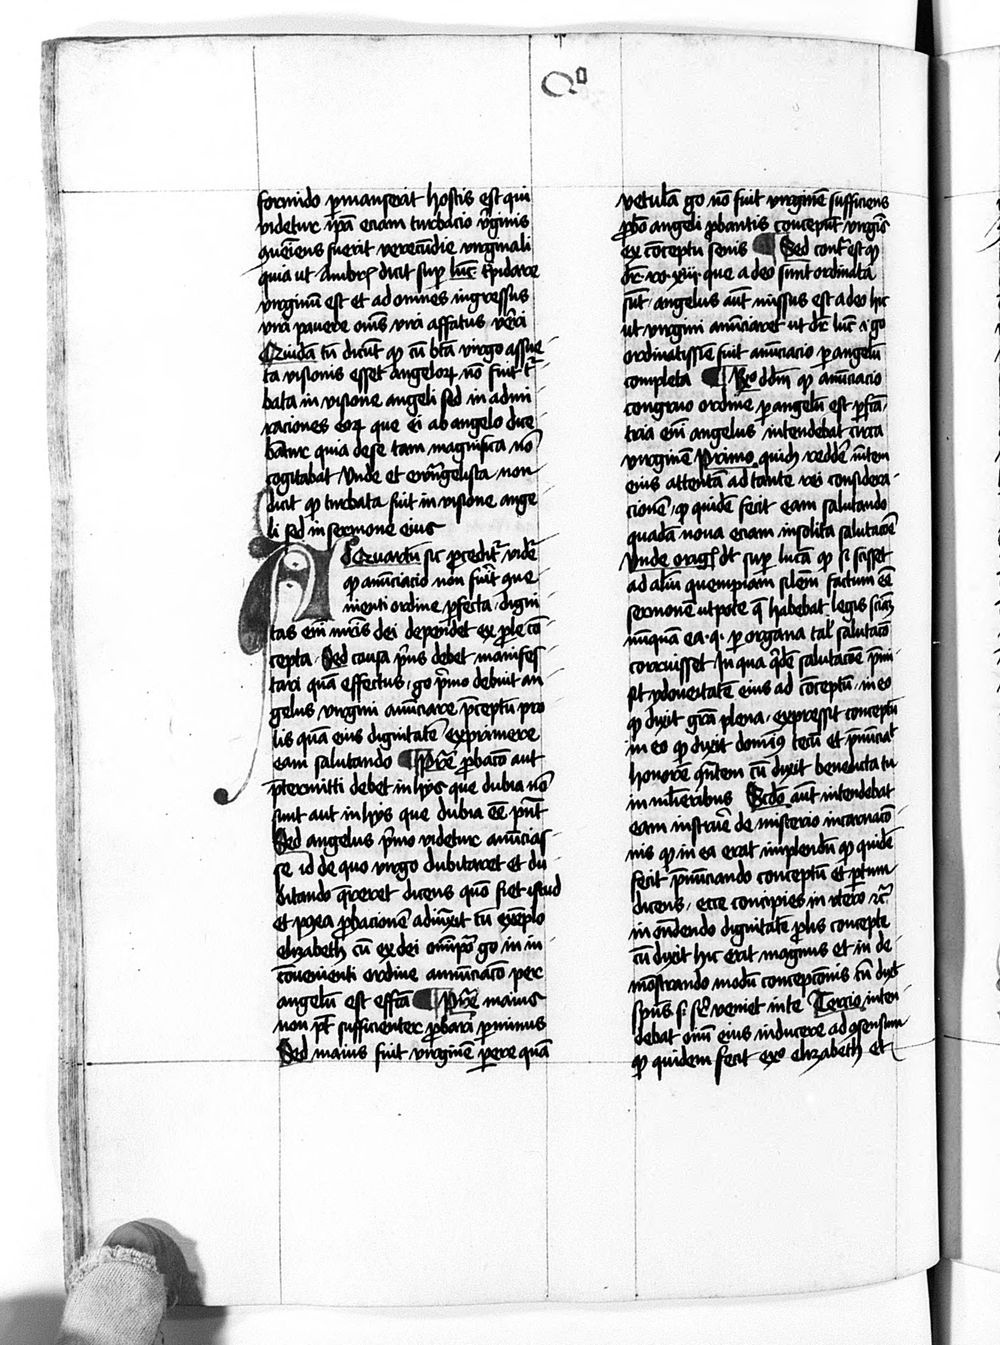 Qo
formido p̄manserit hostis est qui
videtur ip̄a eciam turbacio v̄ginis
que eiens fuerit verecūdie virginali
quia ut Ambrꝰ dicit sup̄ luc̄ trepidare
virginū est et ad omnes ingressus
viri pavere om̄s viri affatus ver̄i
Quidā tn̄ dicūt qꝫ cū bt̄a virgo assue
ta visionis esset angeloꝝ nō fuit tᵉ
bata in visione angeli sed in admi
raciones eoꝝ que ei ab angelo dice
bātur quia de se tam magnifica nō
cogitabat Unde et evāngelista non
dicit qꝫ turbata fuit in visione ange
li sed in sermone eius
Ad Quartū sic p̄cedit᷑ vidē
qꝫ anūciacio non fuit̄ que
nienti ordine p̄fecta digni
tas eni᷑ mr̄is dei dependet ex p̄le cō
cepta Sed causa p̄us debet manifes
tari quā effectus go p̄mo debuit an
gelus virgini anūciare p̄ceptū pro
lis quā eius dignitatē exprimere
eam salutando Pret̄e p̄bacō aut
p̄termitti debet in hijs que dubia nō
sunt aut in hijs que dubia eē pn̄t
Sed angelus p̄mo videtur anūcias
se id de quo virgo dubitaret et du
bitando q̄reret dicens quō fiet istud
et postea p̄bacionē adiūxit tū exēplo
elizabeth cū ex dei oi᷑mpō go in in
cōvenienti ordine annūciacō per
angelū est effcā Pret̄e maius
non pt̄ sufficienter p̄bari p̄ minus
Sed maius fuit virginē p̄ere quā
vetulā go nō fuit virginē sufficiens
p̄bō angeli p̄bantis conceptū virgīs
ex cōceptu senis Sed contᵃ est qꝫ
dr̄ ro xiij que a deo sunt ordinata
sūt angelus aūt missus est a deo hic
ut virgini anūciaret ut dr̄ luc̄ i go
ordinatissīe fuit anūciacio p̄ angelū
completa Rn̄o dd̄m qꝫ anūciacio
congruo ordine p̄ angelū est p̄fcā
tria eni᷑ angelus intendebat circa
virginē Primo quidē reddē mentem
eius attentā ad tante rei considera
cionē qꝫ quidē fecit eam salutando
quadā nova eciam insolita salutacōe
Unde orig᷑ dt̄ sup̄ lucā qꝫ si scisset
ad aliū quempiam silēm factum eē
sermonē utpote q̄ habebat legis sciā
nūquā ea q̄ p̄ organa tal̄ salutacō
corruisset In qua q̄dē salutacōe p̄mi
sit ydoneitatē eius ad cōceptū in eo
qꝫ dixit gr̄a plena expressit conceptū
in eo qꝫ dixit domi᷑ꝰ tecū et p̄nūciat
honorē q̄ntem cū dixit benedicta tu
in mulieribus Scd̄o aūt intendebat
eam instruē de misterio incarnacō
nis qꝫ in ea erat implendū qꝫ quidē
fecit p̄nūciando conceptū et p̄tum
dicens ecce concipies in utero ⁊c̄
in on̄dendo dignitatē p̄lis concepte
cū dixit hic erat magnus et in de
mōstrando modū concepcōnis cū dix̄t
spūs s᷑ sꝯ veniet in te Tercio inten
debat ani᷑m eius inducere ad ꝯsensum
qꝫ quidem fecit exꝯ elizabeth et